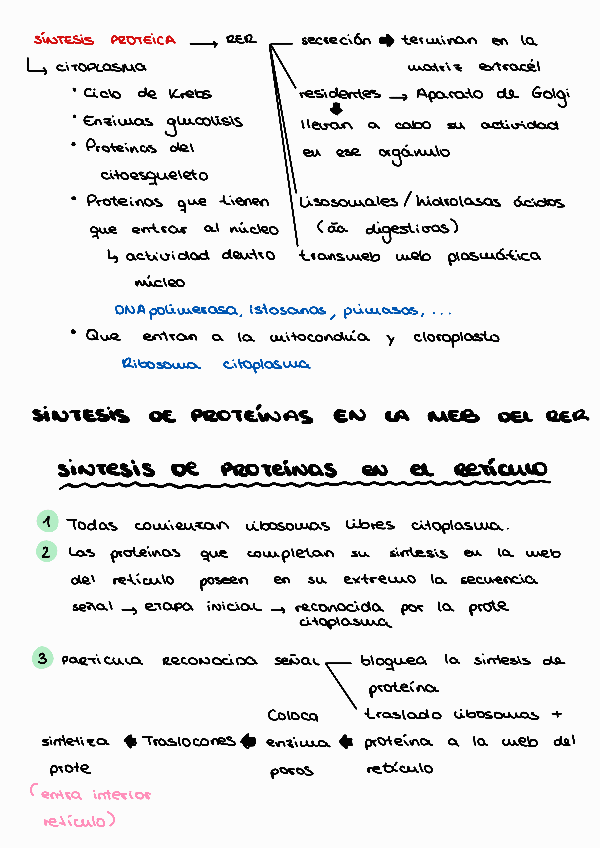 SÍNTESIS PROTEICA → RER
secreción → terminan en la
matriz extracél
residentes → Aparato de Golgi
llevan a cabo su actividad
en ese orgánulo
Lisosomales / hidrolasas ácidos
(digestivas)
transmeb meb plasmática
↳ CITOPLASMA
• Ciclo de Krebs
• Enzimas glucolisis
• Proteínas del
citoesqueleto
• Proteínas que tienen
que entrar al núcleo
↳ actividad dentro
núcleo
DNA polimerasa, Istosonas, primasas, ...
• Que entran a la mitocondria y cloroplasto
Ribosoma citoplasma
SÍNTESIS DE PROTEÍNAS EN LA MEB DEL RER
SINTESIS DE PROTEÍNAS EN EL RETÍCULO
1 Todas comienzan ribosomas libres citoplasma.
2 Las proteínas que completan su síntesis en la meb
del retículo poseen en su extremo la secuencia
señal → ETAPA INICIAL → reconocida por la prote
citoplasma
3 PARTICULA RECONOCIDA SEÑAL
bloquea la sintesis de
proteína
traslado ribosomas +
proteína a la meb del
retículo
Coloca
enzima
poros
Traslocones
sintetiza
prote
(entra interior
retículo)